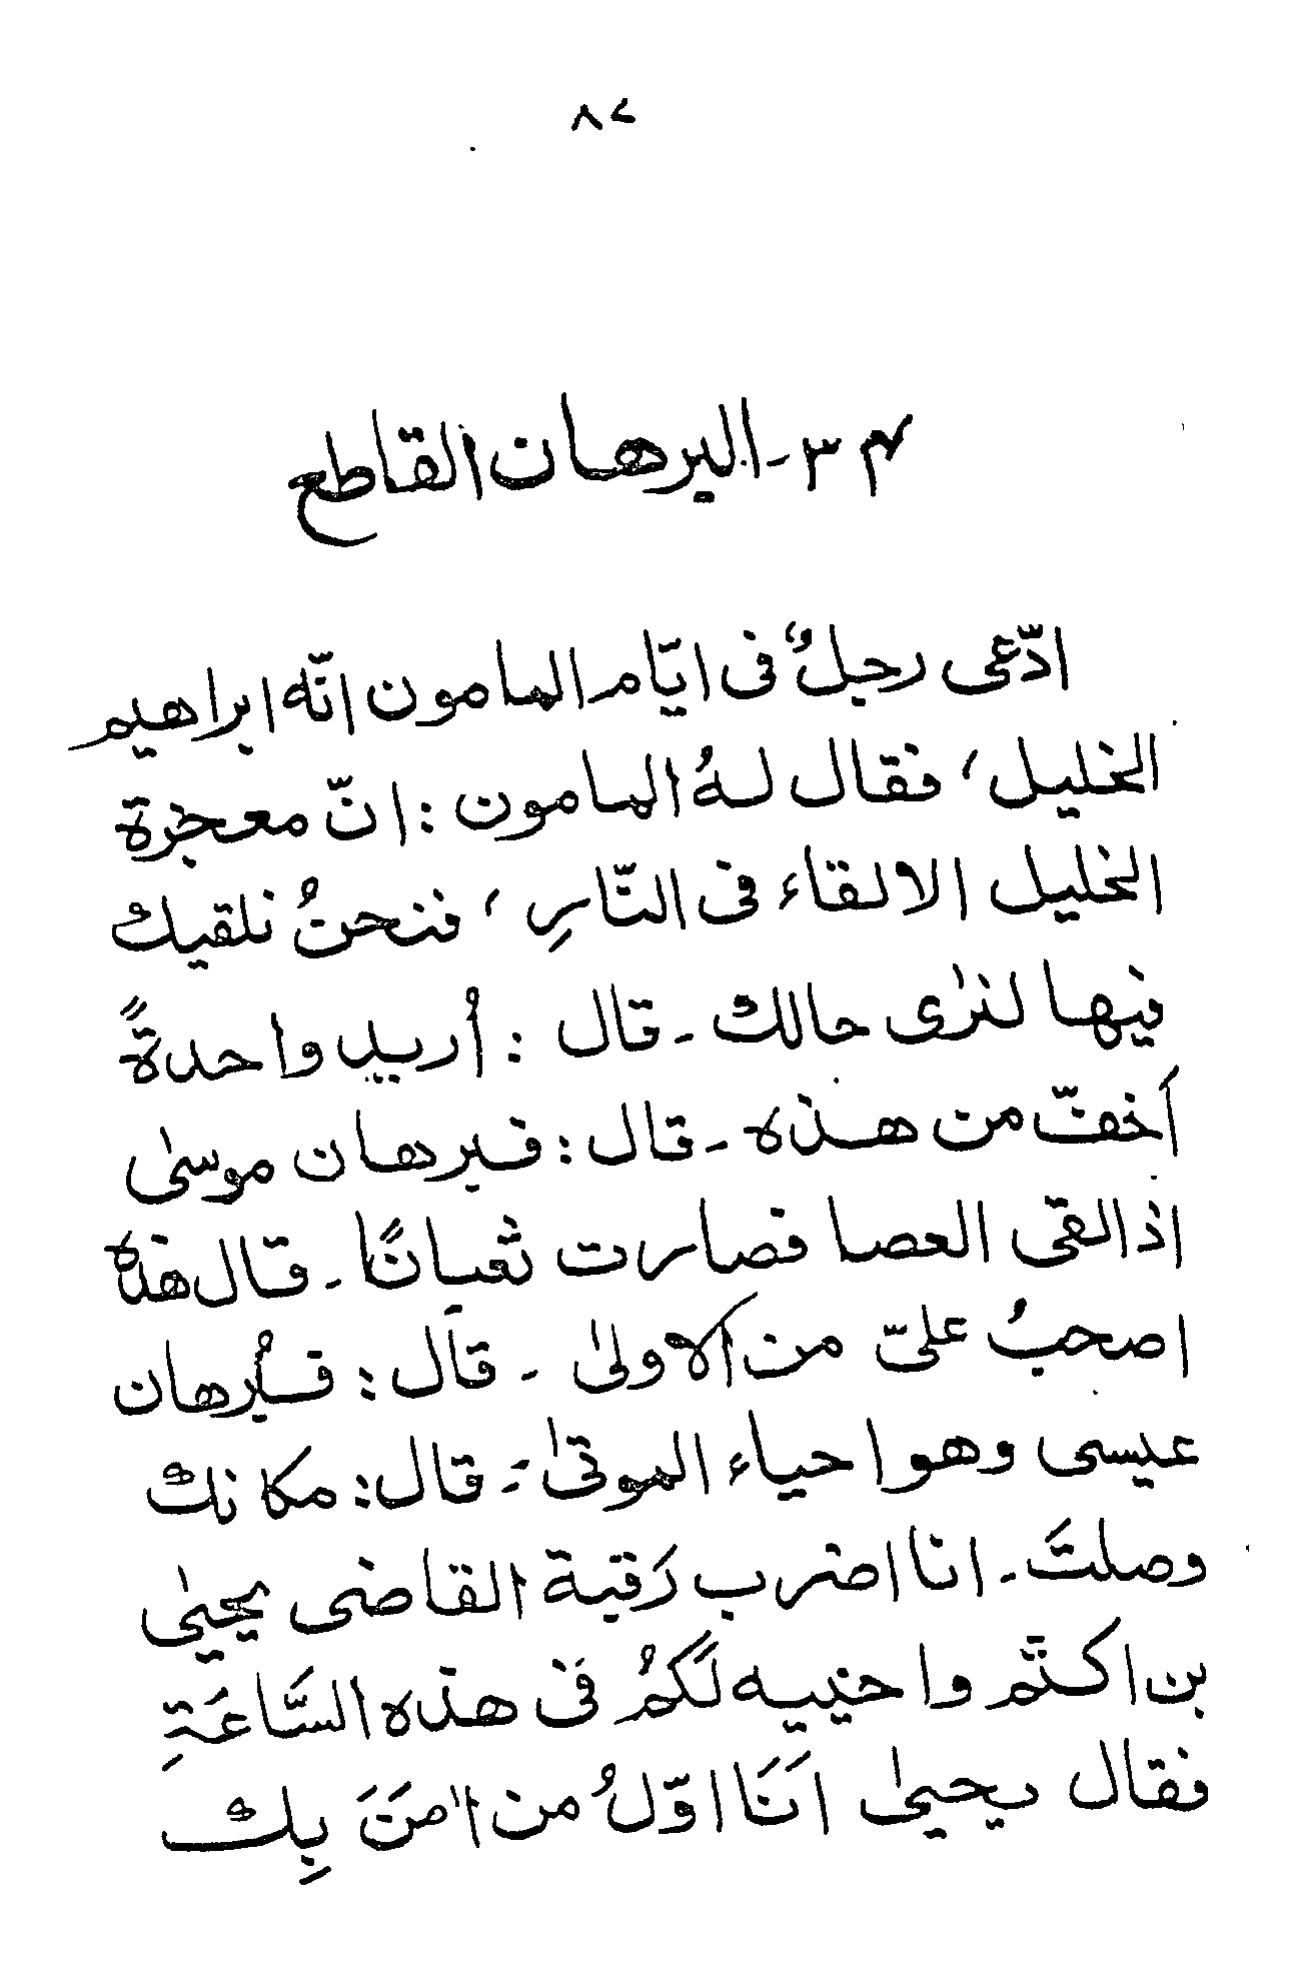 ٨٢
٣٤ - البرهان القاطع
ادّعى رجلٌ فى ايّام المامون انّه ابراهيم
الخليل، فقال لهُ المامون : انّ معجزة
الخليل الالقاء فى النّارِ، فنحنُ نلقيك
فيها لنرٰى حالك - قال : أُريد واحدةً
أخفّ من هذه - قال : فبرهان موسىٰ
اذ القى العصا فصارت ثعبانًا - قال هذه
اصعبُ علىّ من الاولىٰ - قال : فبُرهان
عيسى وهو احياء الموتىٰ - قال : مكانك
وصلتَ - انا اضرب رَقبة القاضى يحيىٰ
بن اكثم واحييه لَكُمُ فى هذه السَّاعَةِ
فقال يحيىٰ اَنَا اوّلُ من اٰمَنَ بِك